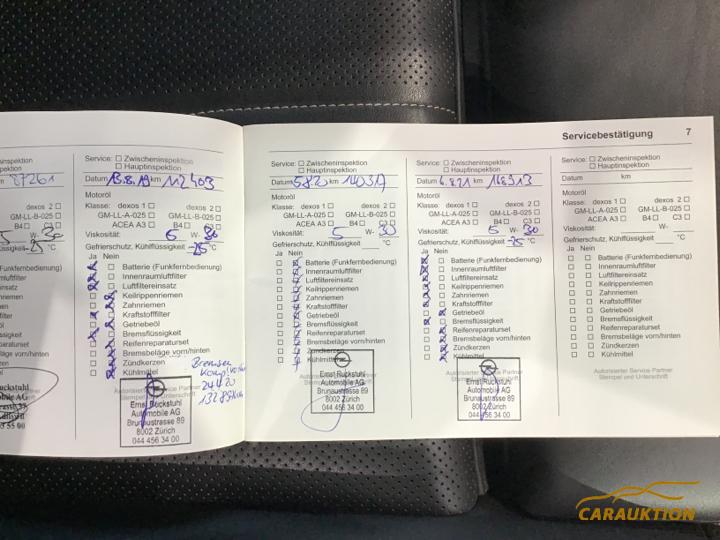 Servicebestätigung 7
nspektion
pektion
m 87261
dexos 2 ☐
GM-LL-B-025 ☐
B4 ☐ C3 ☐
5 W- 30
-25 °C
Service: ☐ Zwischeninspektion
☐ Hauptinspektion
Datum 13.8.19 km 112403
Motoröl
Klasse: dexos 1 ☐ dexos 2 ☐
GM-LL-A-025 ☐ GM-LL-B-025 ☐
ACEA A3 ☐ B4 ☐ C3 ☐
Viskosität: 5 W- 30
Gefrierschutz, Kühlflüssigkeit -25 °C
Ja Nein
Batterie (Funkfernbedienung)
Innenraumluftfilter
Luftfiltereinsatz
Keilrippenriemen
Zahnriemen
Kraftstofffilter
Getriebeöl
Bremsflüssigkeit
Reifenreparaturset
Bremsbeläge vorn/hinten
Zündkerzen
Kühlmittel
Bremsen
24.4.20
Autorisierter Service Partner
Stempel und Unterschrift
Ernst Ruckstuhl
Automobile AG
Brunaustrasse 89
8002 Zürich
044 456 34 00
Service: ☐ Zwischeninspektion
☐ Hauptinspektion
Datum 5.8.20 km
Motoröl
Klasse: dexos 1 ☐ dexos 2 ☐
GM-LL-A-025 ☐ GM-LL-B-025 ☐
ACEA A3 ☐ B4 ☐ C3 ☐
Viskosität: 5 W- 30
Gefrierschutz, Kühlflüssigkeit °C
Ja Nein
Batterie (Funkfernbedienung)
Innenraumluftfilter
Luftfiltereinsatz
Keilrippenriemen
Zahnriemen
Kraftstofffilter
Getriebeöl
Bremsflüssigkeit
Reifenreparaturset
Bremsbeläge vorn/hinten
Zündkerzen
Kühlmittel
Ernst Ruckstuhl
Automobile AG
Brunaustrasse 89
8002 Zürich
044 456 34 00
Service: ☐ Zwischeninspektion
☐ Hauptinspektion
Datum 6.8.21 km 168913
Motoröl
Klasse: dexos 1 ☐ dexos 2 ☐
GM-LL-A-025 ☐ GM-LL-B-025 ☐
ACEA A3 ☐ B4 ☐ C3 ☐
Viskosität: 5 W- 30
Gefrierschutz, Kühlflüssigkeit -25 °C
Ja Nein
Batterie (Funkfernbedienung)
Innenraumluftfilter
Luftfiltereinsatz
Keilrippenriemen
Zahnriemen
Kraftstofffilter
Getriebeöl
Bremsflüssigkeit
Reifenreparaturset
Bremsbeläge vorn/hinten
Zündkerzen
Kühlmittel
Ernst Ruckstuhl
Automobile AG
Brunaustrasse 89
8002 Zürich
044 456 34 00
Service: ☐ Zwischeninspektion
☐ Hauptinspektion
Datum km
Motoröl
Klasse: dexos 1 ☐ dexos 2 ☐
GM-LL-A-025 ☐ GM-LL-B-025 ☐
ACEA A3 ☐ B4 ☐ C3 ☐
Viskosität: W-
Gefrierschutz, Kühlflüssigkeit °C
Ja Nein
☐ ☐ Batterie (Funkfernbedienung)
☐ ☐ Innenraumluftfilter
☐ ☐ Luftfiltereinsatz
☐ ☐ Keilrippenriemen
☐ ☐ Zahnriemen
☐ ☐ Kraftstofffilter
☐ ☐ Getriebeöl
☐ ☐ Bremsflüssigkeit
☐ ☐ Reifenreparaturset
☐ ☐ Bremsbeläge vorn/hinten
☐ ☐ Zündkerzen
☐ ☐ Kühlmittel
Autorisierter Service Partner
Stempel und Unterschrift
CARAUKTION